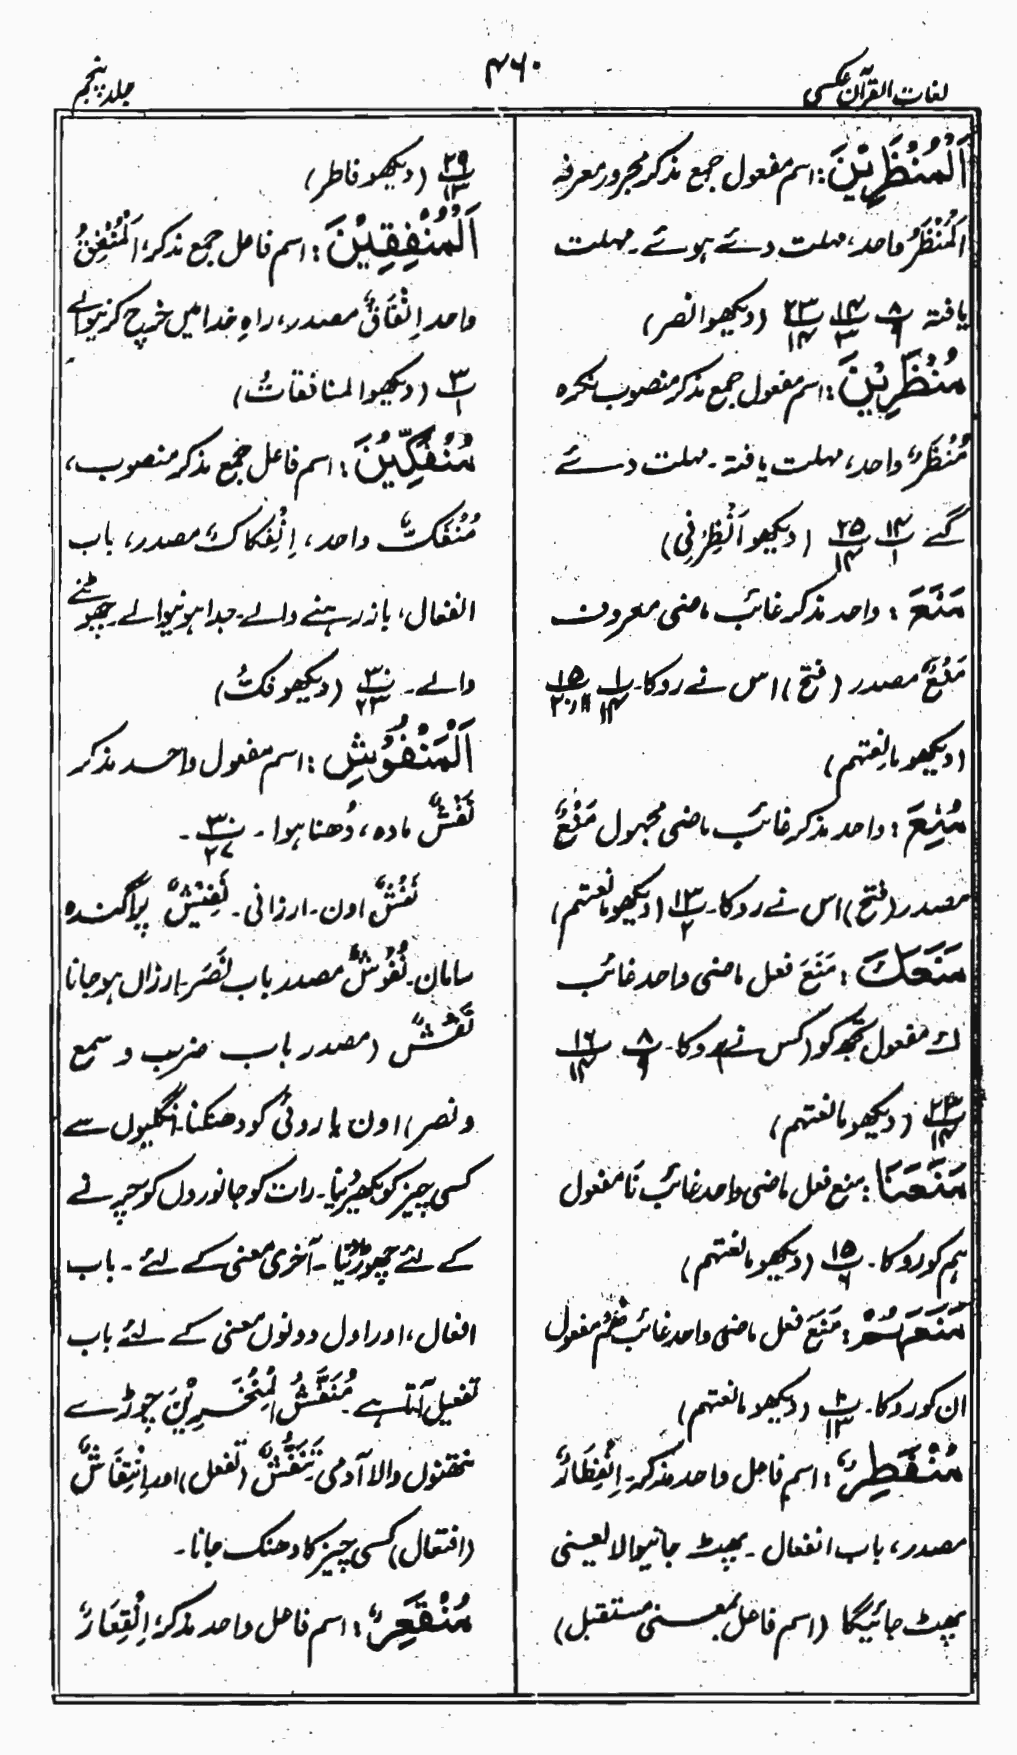 لغات القرآن عکسی
۴۶۰
جلد پنجم
اَلْمُنْظَرِیْنَ: اسم مفعول جمع مذکر مجرور معرفہ
اَلْمُنْظَرُ واحد، مہلت دئے ہوئے۔ مہلت
یافتہ ۸/۹ ۱۴/۳ ۲۳/۱۴ (دیکھو انصر)
مُنْظَرِیْنَ: اسم مفعول جمع مذکر منصوب نکرہ
مُنْظَرٌ واحد، مہلت یافتہ۔ مہلت دئے
گئے ۱۴/۱ ۲۵/۱۴ (دیکھو اَنْظِرْنِی)
مَنَعَ: واحد مذکر غائب ماضی معروف
مَنْعٌ مصدر (فتح) اس نے روکا۔ ۱/۱۴ ۱۵/۱۱،۲۰
(دیکھو مانعتہم)
مُنِعَ: واحد مذکر غائب ماضی مجہول مَنْعٌ
مصدر (فتح) اس نے روکا۔ ۱۳/۲ (دیکھو مانعتہم)
مَنَعَكَ: مَنَعَ فعل ماضی واحد غائب
ك مفعول تجھ کو (کس نے) روکا۔ ۸/۹ ۱۶/۱۴
۲۳/۱۴ (دیکھو مانعتہم)
مَنَعَنَا: منع فعل ماضی واحد غائب نَا مفعول
ہم کو روکا۔ ۱۵/۶ (دیکھو مانعتہم)
مَنَعَہُمْ: مَنَعَ فعل ماضی واحد غائب ہُمْ مفعول
ان کو روکا۔ ۱۰/۱۳ (دیکھو مانعتہم)
مُنْفَطِرٌ: اسم فاعل واحد مذکر۔ اِنْفِطَارٌ
مصدر، باب انفعال۔ پھٹ جانیوالا یعنی
پھٹ جائیگا (اسم فاعل بمعنی مستقبل)
۲۹/۱۳ (دیکھو فاطر)
اَلْمُنْفِقِیْنَ: اسم فاعل جمع مذکر، اَلْمُنْفِقُ
واحد اِنْفَاقٌ مصدر، راہِ خدا میں خرچ کرنیوالے
۳/۱ (دیکھو المنافقاتُ)
مُنْفَکِّیْنَ: اسم فاعل جمع مذکر منصوب،
مُنْفَکٌّ واحد، اِنْفِکَاكٌ مصدر، باب
انفعال، باز رہنے والے۔ جدا ہونیوالے۔ چھوٹنے
والے۔ ۳۰/۲۳ (دیکھو فَکُّ)
اَلْمَنْفُوْشِ: اسم مفعول واحد مذکر
نَفْشٌ مادہ، دُھنا ہوا۔ ۳۰/۲۷۔
نَفْشٌ اون۔ ارزانی۔ نَفِیْشٌ پراگندہ
سامان۔ نُفُوْشٌ مصدر باب نَصَر۔ ارزاں ہو جانا
نَفْشٌ (مصدر باب ضرب و سمع
و نصر) اون یا روئی کو دھنکنا۔ انگلیوں سے
کسی چیز کو بکھیر دینا۔ رات کو جانوروں کو چرنے
کے لئے چھوڑ دینا۔ آخری معنی کے لئے۔ باب
افعال، اور اول دونوں معنی کے لئے باب
تفعیل آتا ہے۔ مُنَفَّشُ الْمِنْخَرَیْنِ چوڑے
نتھنوں والا آدمی۔ تَنَفُّشٌ (تفعل) اور اِنْتِفَاشٌ
(افتعال) کسی چیز کا دھنک جانا۔
مُنْقَعِرٌ: اسم فاعل واحد مذکر، اِنْقِعَارٌ